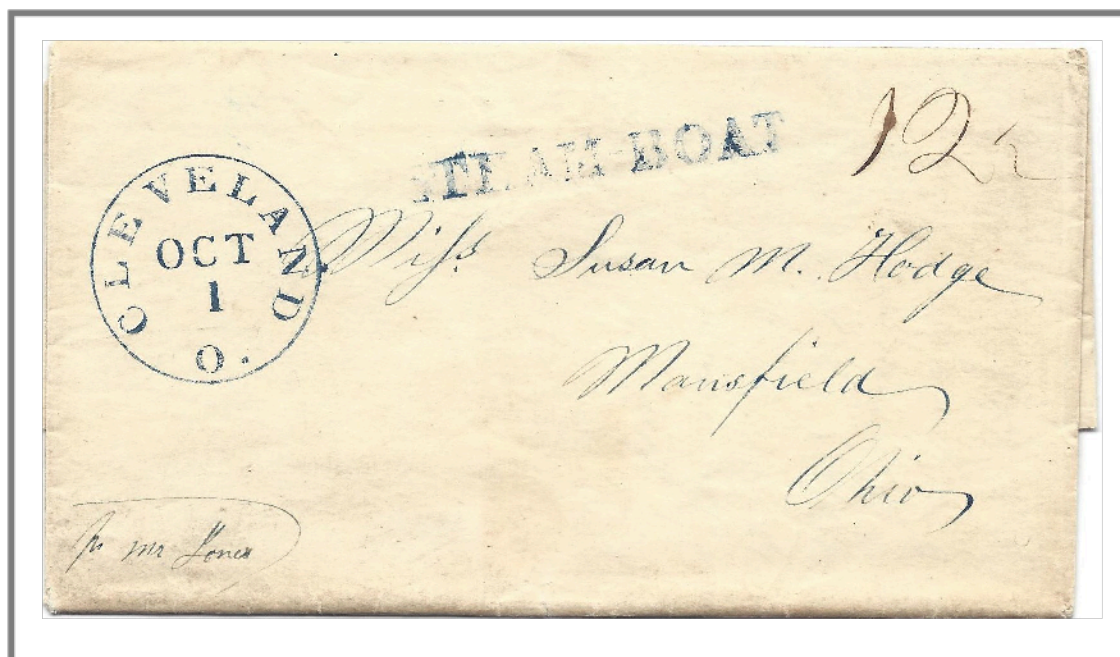 STEAM-BOAT
12½
CLEVELAND
OCT
1
O.
Miſs Susan M. Hodge
Mansfield
Ohio
Mr Jones